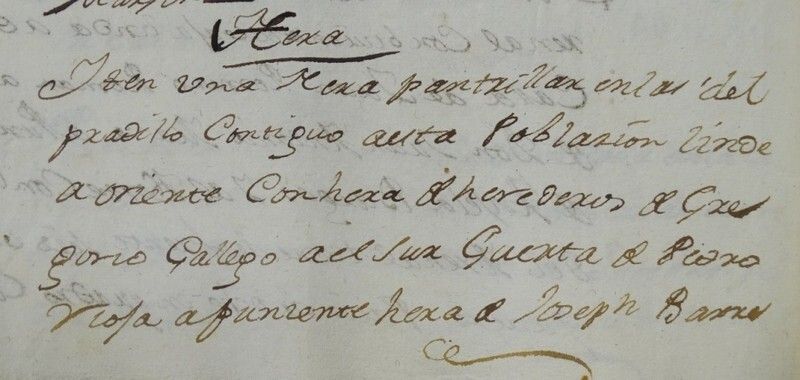 Hera
Iten vna Hera pantrillar en las del
pradillo Contiguo a esta Poblazion linde
a oriente Con hera de herederos de Gre
gorio Gallego a el sur Guerta de Pedro
a puniente hera de Joseph Barre